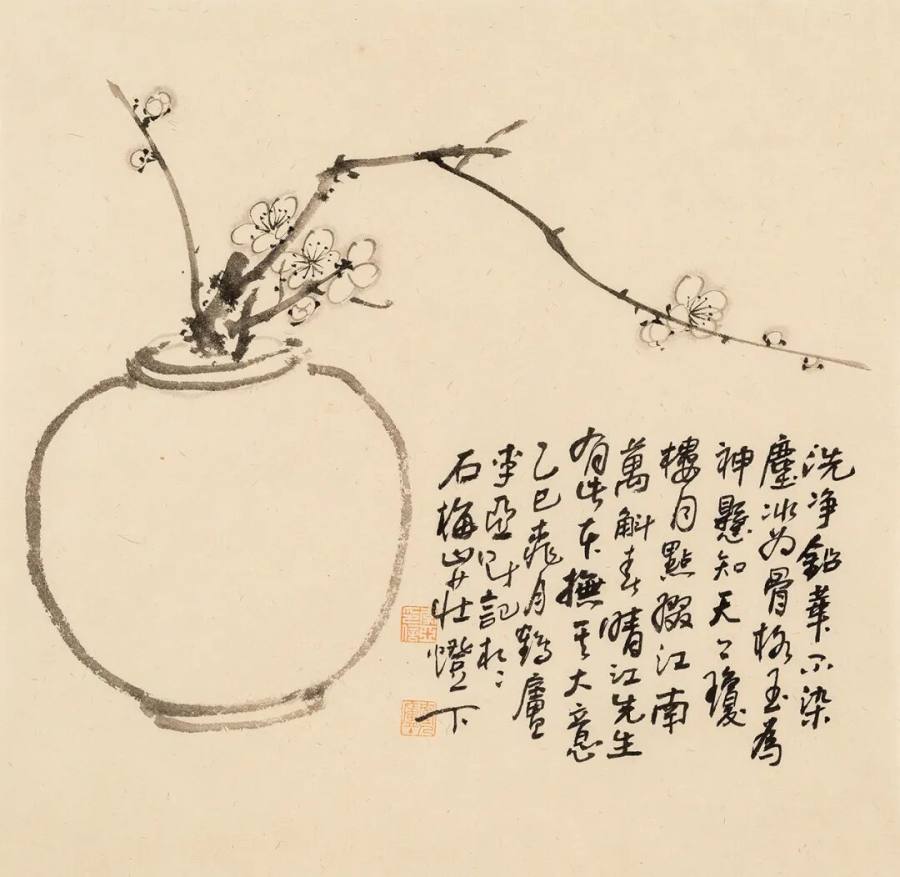 洗净鉛華不染
塵冰为骨格玉為
神懸知天上瓊
樓月點綴江南
萬斛春晴江先生
有此本撫其大意
乙巳桃月鶴廬
李亞記於
石梅山莊燈下